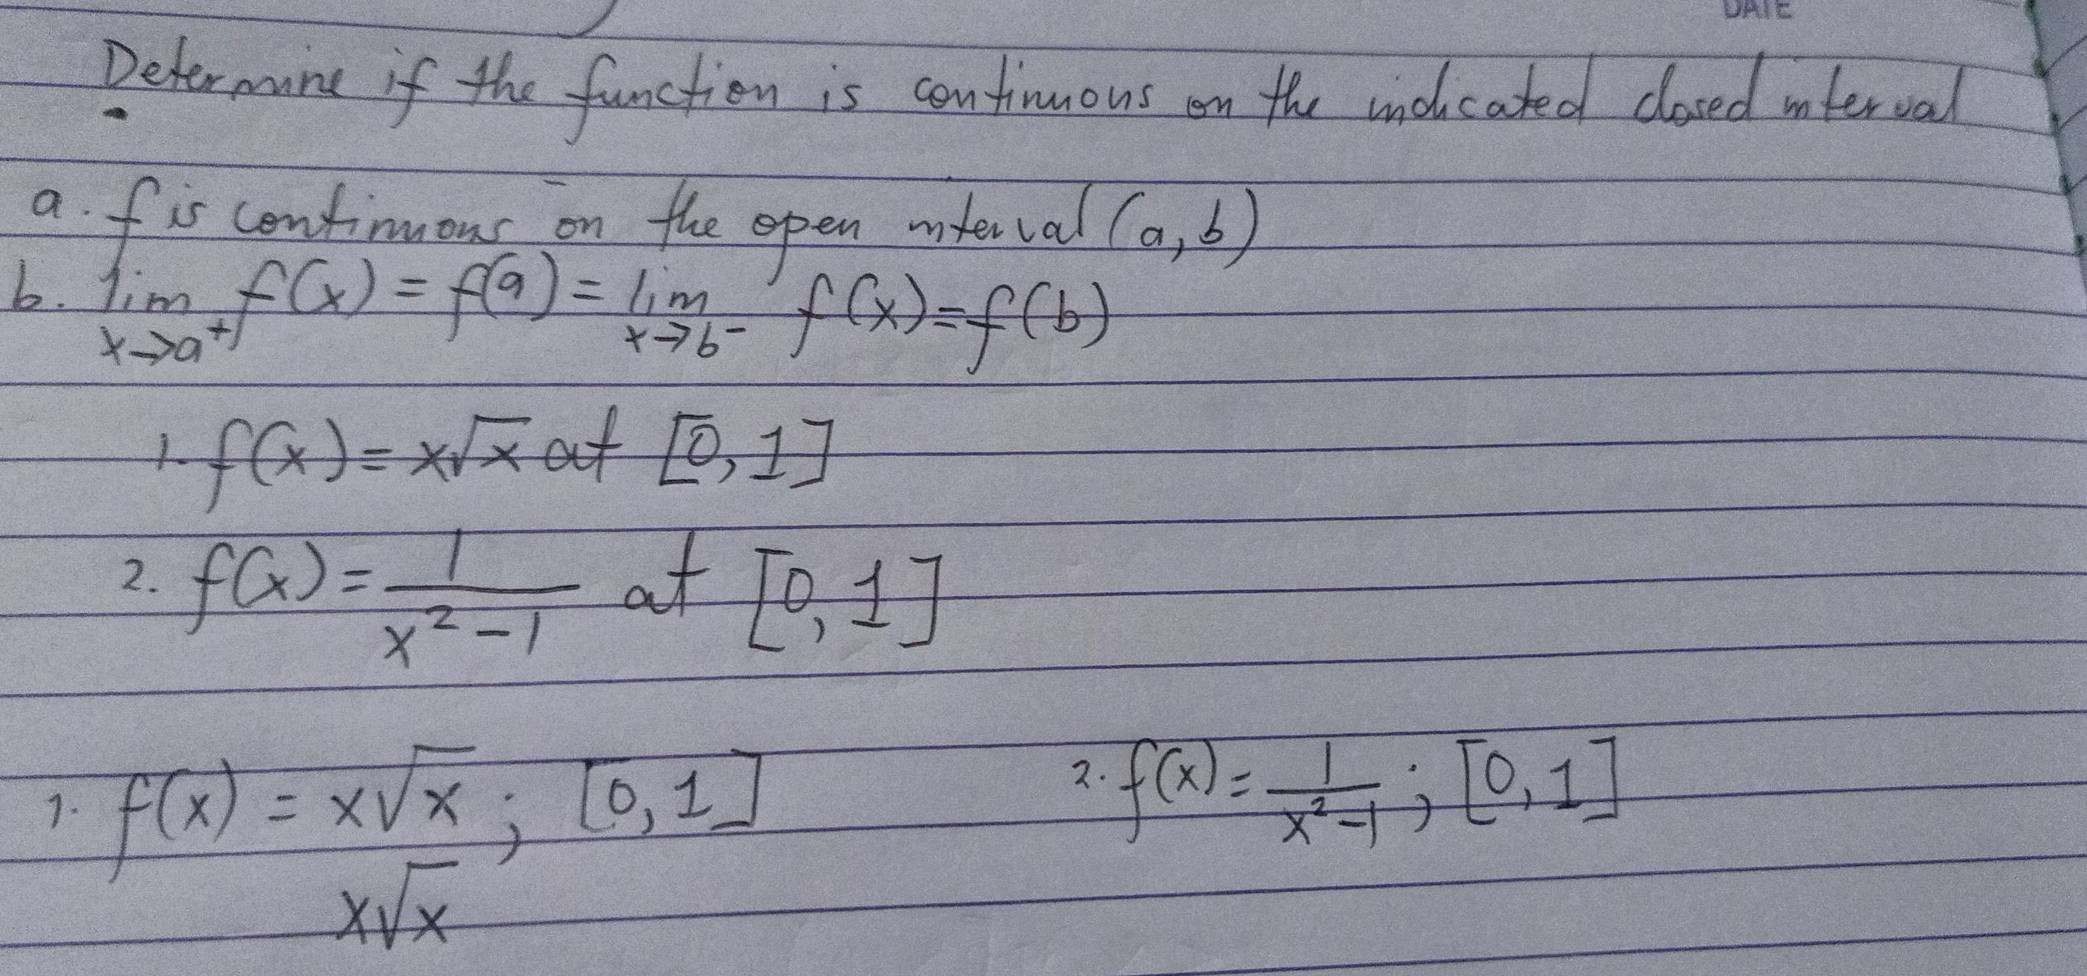 DATE
Determine if the function is continuous on the indicated closed interval
a. f is continuous on the open interval (a, b)
b. lim x→a⁺ f(x) = f(a) = lim x→b⁻ f(x) = f(b)
1. f(x) = x√x at [0, 1]
2. f(x) = 1/(x² - 1) at [0, 1]
1. f(x) = x√x ; [0, 1] 2. f(x) = 1/(x² - 1) ; [0, 1]
x√x